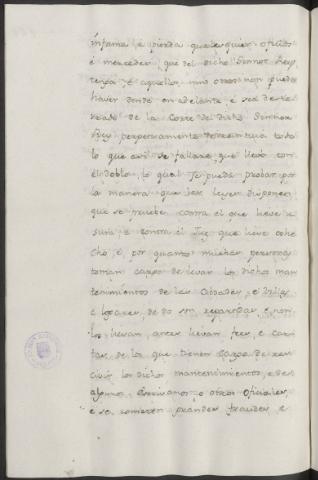 infame é pierda qualesquier oficios
é mercedes que del dicho Señor Rey
tenga é aquellos nin otros non pueda
haver dende en adelante, é sea deste
rrado de la Corte del dicho Señor
Rey perpetuamente é restituya todo
lo que assi se fallare que llevó con
el doblo, lo qual se pueda probar por
la manera que las leyes disponen
que se pruebe contra el que lieva u
sura, é contra el Juez que lieva cohe
cho é por quanto muchas personas
toman cargo de levar los dichos man
tenimientos de las Cibdades, é Villas
é logares, de do son repartidos é non
los llevan, antes llevan fees, é car
tas de los que tienen cargo de rece
civir los dichos mantenimientos, é de
algunos escrivanos é otros oficiales,
é se cometen grandes fraudes é